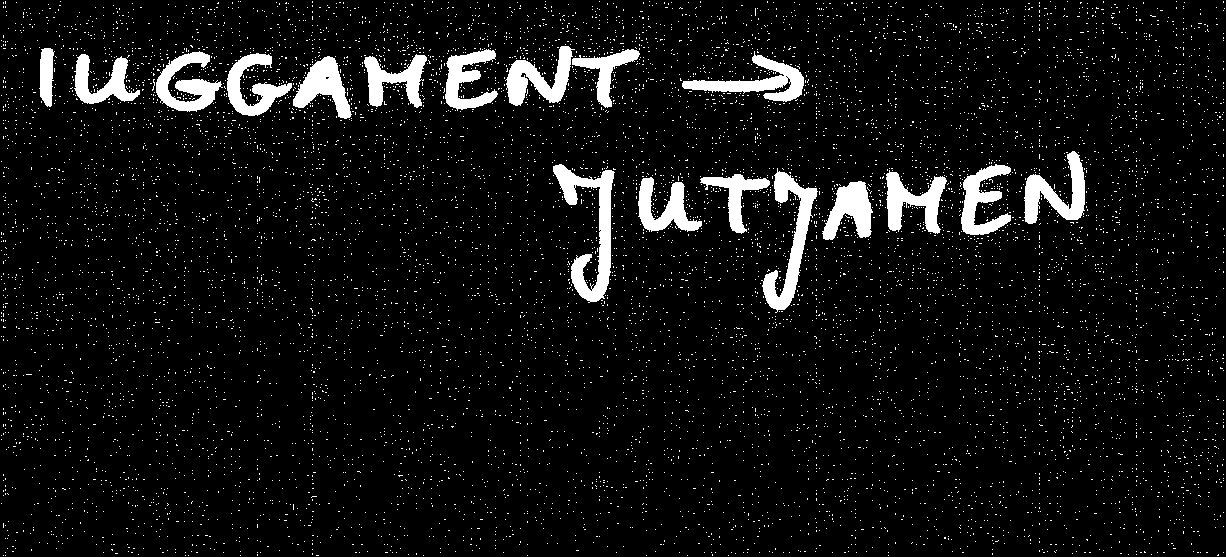 IUGGAMENT →
JUTJAMEN